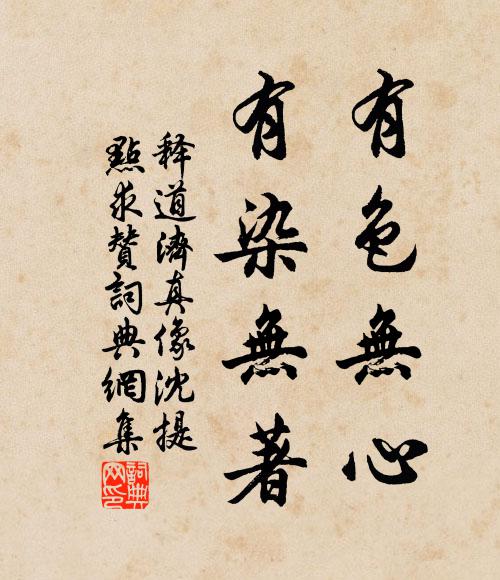 有色無心
有染無著
释道濟真像沈提
點求贊詞典網集
詞典
网印